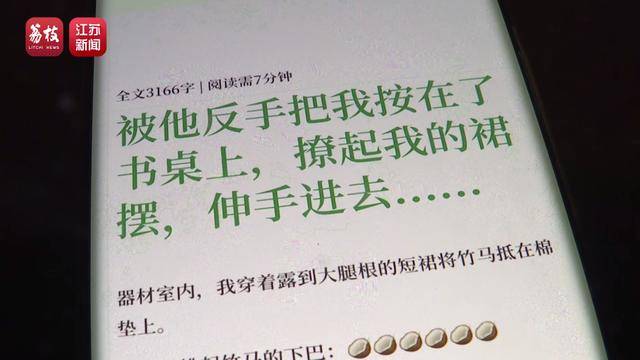 荔枝
LITCHI NEWS
江苏
新闻
全文3166字 | 阅读需7分钟
被他反手把我按在了
书桌上，撩起我的裙
摆，伸手进去……
器材室内，我穿着露到大腿根的短裙将竹马抵在棉
垫上。
起竹马的下巴：